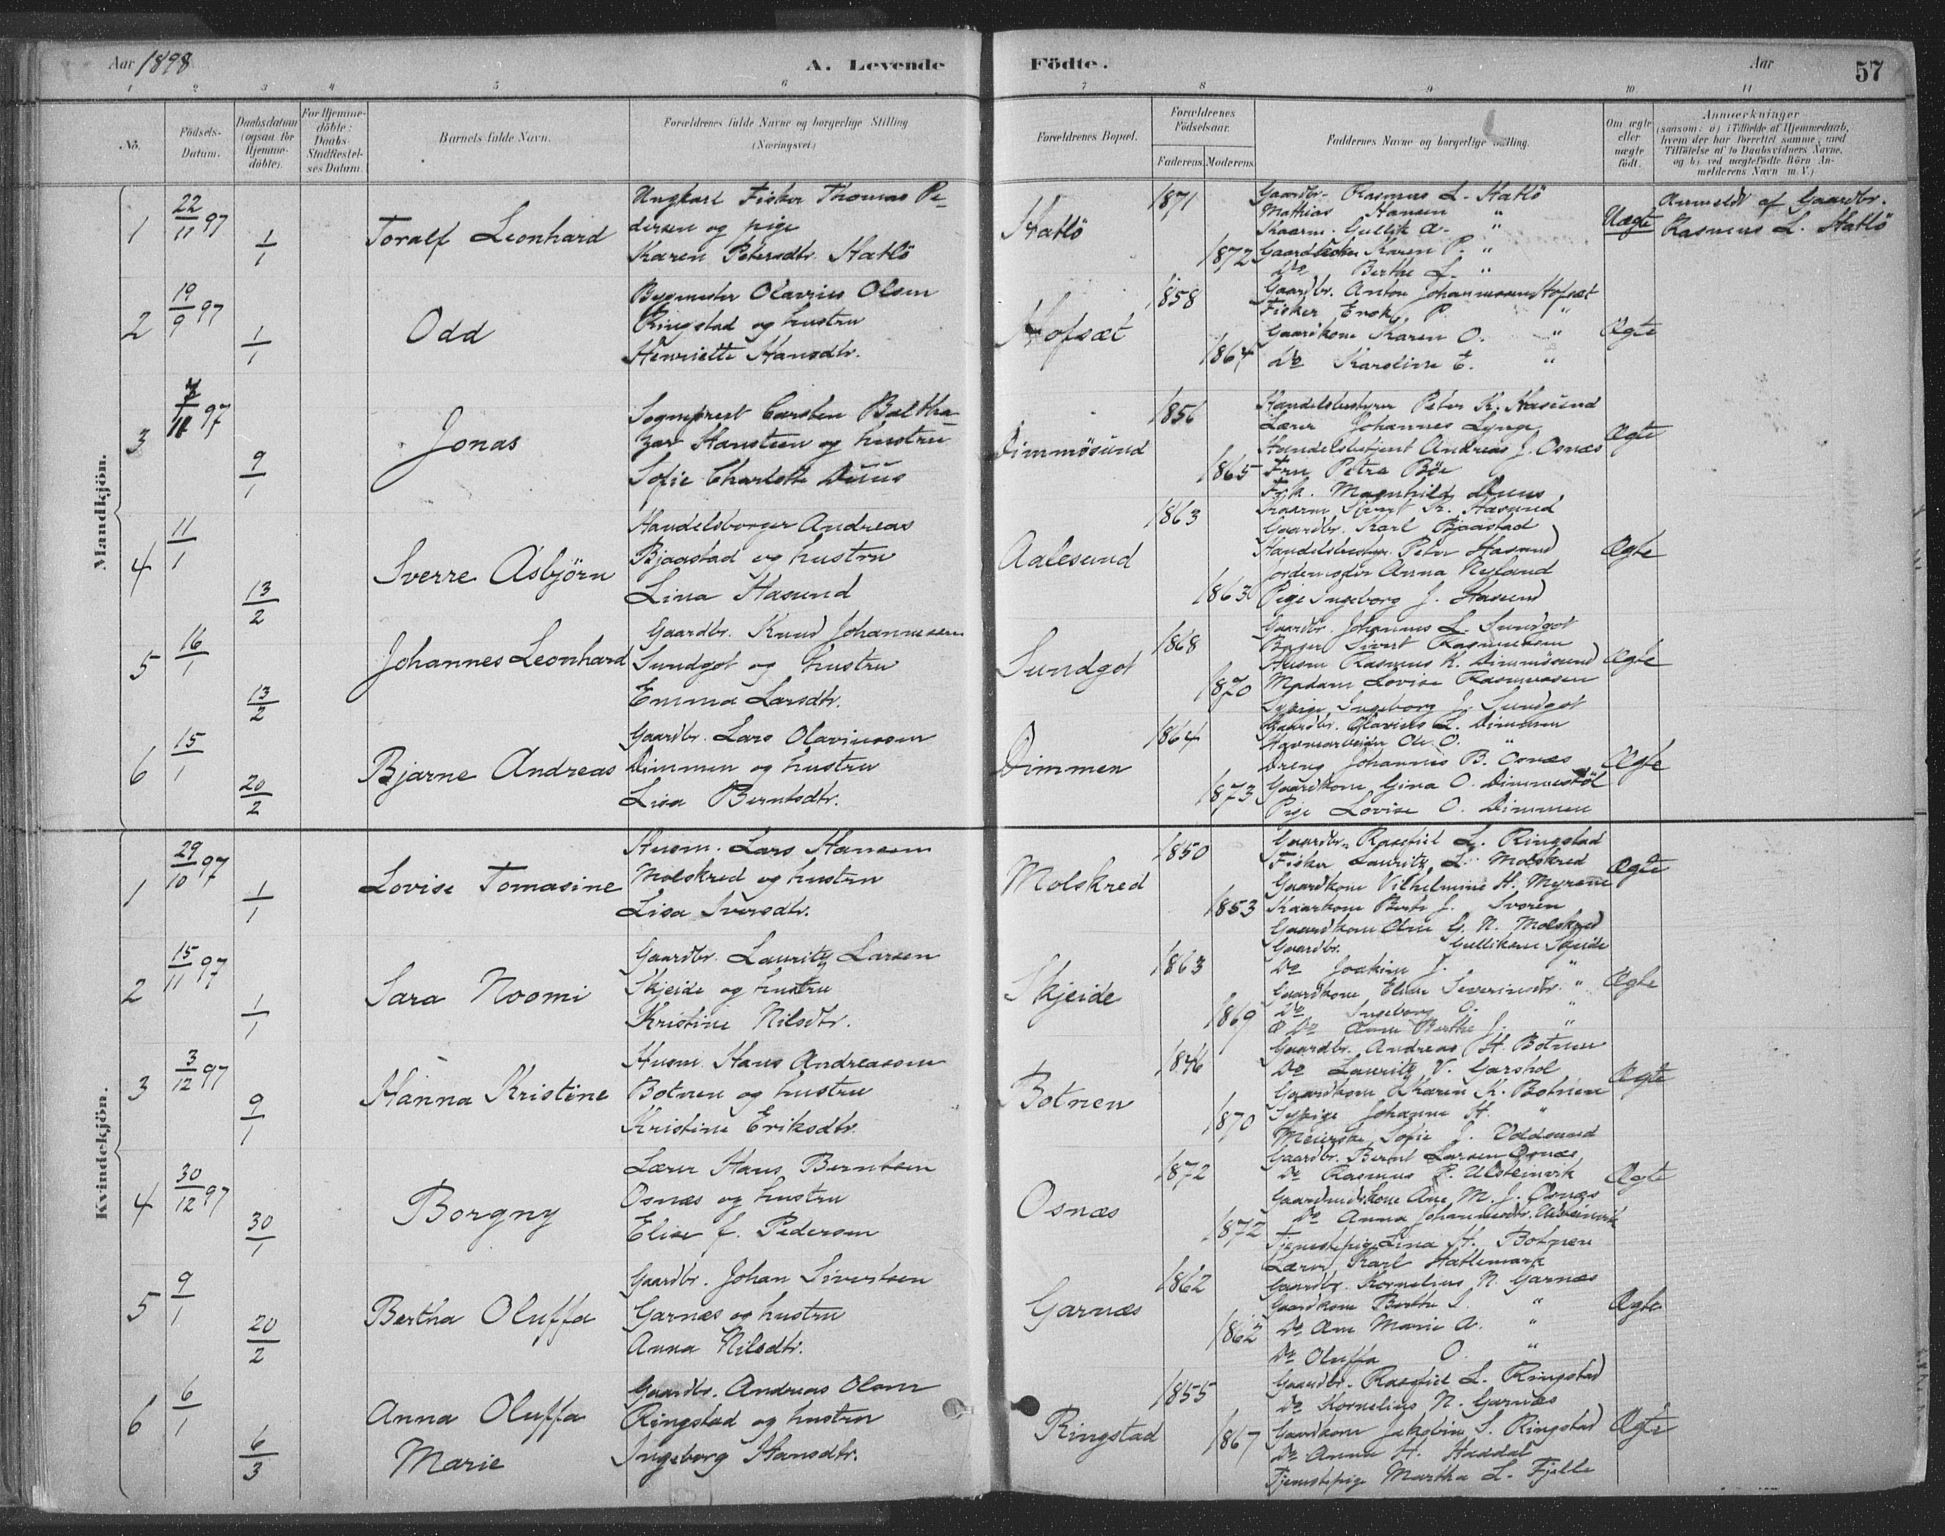 Aar 1898
A. Levende Födte.
Aar
57
1 2 3 4 5 6 7 8 9 10 11
No.
Födsels-Datum.
Daabsdatum (ogsaa for Hjemme-döbte).
For Hjemme-döbte: Daabs-Stadfæstel-ses Datum.
Barnets fulde Navn.
Forældrenes fulde Navne og borgerlige Stilling (Næringsvei.)
Forældrenes Bopæl.
Forældrenes Födselsaar.
Faderens. Moderens.
Faddernes Navne og borgerlige Stilling.
Om ægte eller uægte födt.
Anmærkninger
(saasom: a) i Tilfælde af Hjemmedaab,
hvem der har forrettet samme, med
Tilföielse af to Daabsvidners Navne,
og b) ved uægtefödte Börn An-
melderens Navn m. V.)
Mandkjön.
1 22/11 97 1/1 Toralf Leonhard
Ungkarl Fisker Thomas Pe-
dersen og pige
Karen Petersdtr. Hatlö
Hatlö 1871 1872
Gaardbr. Rasmus L. Hatlö
Mathias Hansen "
Kaarm. Gullik A. "
Gaardkone Karen P. "
Do Berthe L. "
Uægte
Anmeldt af Gaardbr.
Rasmus L. Hatlö
2 19/9 97 1/1 Odd
Bygmester Olavius Olsen
Ringstad og hustru
Henriette Hansdtr.
Hofsæt 1858 1864
Gaardbr. Anton Johannessen Hofsæt
Fisker Enok P. "
Gaardkone Karen O. "
Do Karoline E. "
Ægte
3 97 9/1 Jonas
Sogneprest Carsten Baltha-
zar Hansteen og hustru
Sofie Charlotte Duus
Dimmösund 1856 1865
Handelsbestyrer Peter K. Hasund
Lærer Johannes Lynge
Handelsbetjent Andreas J. Osnæs
Fru Petra Böe
Frk. Magnhild Duus
Ægte
4 11/1 13/2 Sverre Asbjörn
Handelsborger Andreas
Bjaastad og hustru
Lina Hasund
Aalesund 1863 1863
Kaarm Sivert K. Hasund
Gaardbr. Karl Bjaastad
Handelsbestyr. Peter Hasund
Jordemoder Anna Nyland
Pige Ingeborg J. Hasund
Ægte
5 16/1 13/2 Johannes Leonhard
Gaardbr. Knud Johannessen
Sundgot og hustru
Emma Larsdtr.
Sundgot 1868 1870
Gaardbr. Johannes L. Sundgot
Bager Sivert Rasmussen
Husm Rasmus K. Dimmösund
Madam Lovise Rasmussen
Sypige Ingeborg J. Sundgot
Ægte
6 15/1 20/2 Bjarne Andreas
Gaardbr. Lars Olavinssen
Dimmen og hustru
Lisa Berntsdtr.
Dimmen 1864 1873
Gaardbr. Olavius L. Dimmen
Havnearbeider Ole O. "
Dreng Johannes B. Osnæs
Gaardkone Gina O. Dimmestöl
Pige Lovise O. Dimmen
Ægte
Kvindekjön.
1 29/10 97 1/1 Lovise Tomasine
Husm. Lars Hansen
Molskred og hustru
Lisa Iversdtr.
Molskred 1850 1853
Gaardbr. Rasmus L. Ringstad
Fisker Laurits L. Molskred
Gaardkone Vilhelmine H. Myrene
Kaarkone Berte J. Svoren
Gaardkone Oline G. N. Molskred
Ægte
2 15/11 97 1/1 Sara Noomi
Gaardbr. Laurits Larsen
Skjeide og hustru
Kristine Nilsdtr.
Skjeide 1863 1869
Gaardbr. Gulliksen Skjeide
Do Joakim J. "
Gaardkone Eline Severinsdtr. "
Do Ingeborg O. "
Do Anne Berthe J. "
Ægte
3 3/12 97 9/1 Hanna Kristine
Husm. Hans Andreassen
Botnen og hustru
Kristine Eriksdtr.
Botnen 1846 1870
Gaardbr. Andreas H. Botnen
Do Laurits V. Garshol
Gaardkone Karen K. Botnen
Sypige Johanne H. "
Meierske Sofie J. Voldsund
Ægte
4 30/12 97 30/1 Borgny
Lærer Hans Berntsen
Osnæs og hustru
Elise f. Pedersen
Osnæs 1872 1872
Gaardbr. Bernt Larsen Osnæs
Do Rasmus P. Ulsteinvik
Gaardmandskone Ane M. J. Osnæs
Do Anna Johannesdtr. Ulsteinvik
Tjenestepige Lina H. Botnen
Ægte
5 9/1 20/2 Bertha Oluffa
Gaardbr. Johan Sivertsen
Garnæs og hustru
Anna Nilsdtr.
Garnæs 1862 1862
Lærer Karl Hatlemark
Gaardbr. Kornelius N. Garnæs
Gaardkone Berthe S. "
Do Ane Marie A. "
Do Oluffa O. "
Ægte
6 6/1 6/3 Anna Oluffa
Marie
Gaardbr. Andreas Olsen
Ringstad og hustru
Ingeborg Hansdtr.
Ringstad 1855 1867
Gaardbr. L. Ringstad
Do Kornelius N. Garnæs
Gaardkone Jakobine S. Ringstad
Do Anna H. Haddal
Tjenestepige Martha L. Fjelle
Ægte